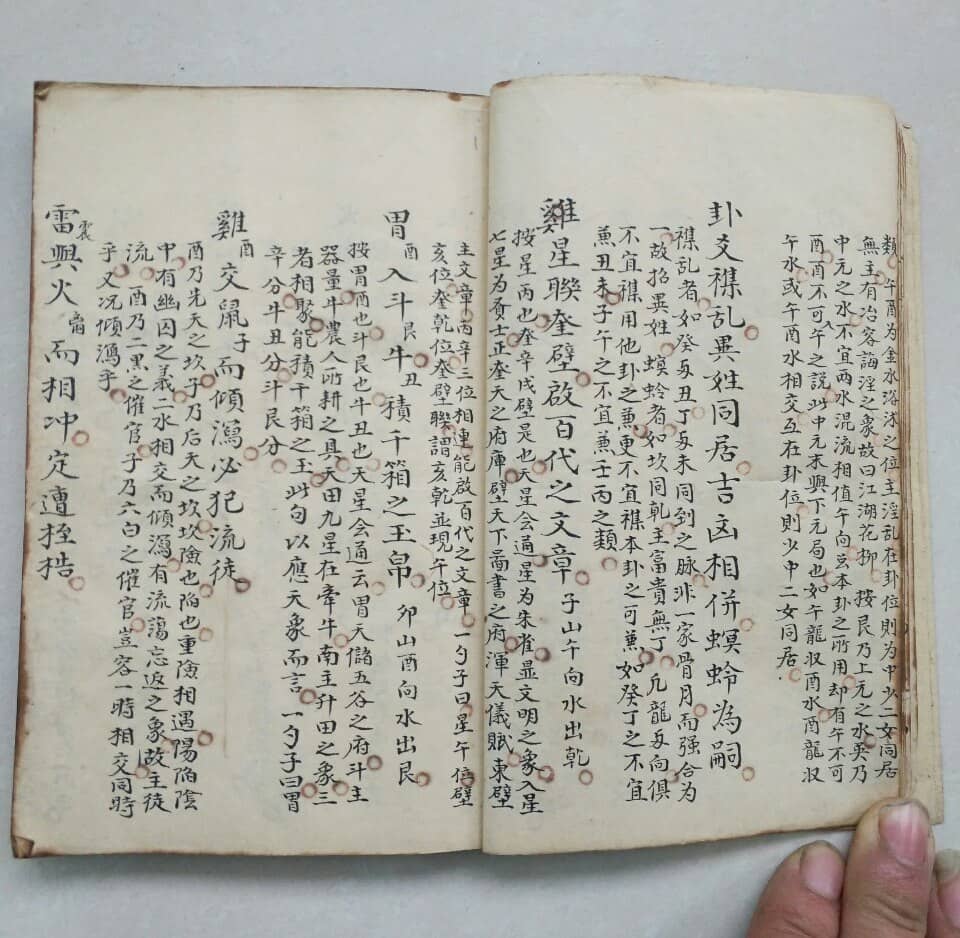 類午酉為金水浴沐之位主淫乱在卦位則為中少二女同居
無主有冶容誨淫之象故曰江湖花柳 按艮乃上元之水巽乃
中元之水不宜两水混流相值午向或本卦之所用却有午不可
酉酉不可午之說此中元末興下元局也如午龍収酉水酉龍収
午水或午酉水相交互在卦位則少中二女同居
卦爻襍乱異姓同居吉凶相併螟蛉為嗣
襍乱者如癸与丑丁与未同到之脉非一家骨月而强合為
一故招異姓螟蛉者如坎同乾主富貴無丁凢龍与向俱
不宜襍用他卦之兼更不宜襍本卦之可兼如癸丁之不宜
兼丑未子午之不宜兼壬丙之類
雞星聯奎壁啟百代之文章子山午向水出乾
按星丙也奎辛戌壁是也天星会通星為朱雀显文明之象入星
七星為賁士正奎天之府庫壁天下啚書之府渾天儀賦東壁
主文章丙辛三位相連能啟百代之文章一勺子曰星午位壁
亥位奎乾位奎壁聯謂亥乾並現午位
胃酉入斗艮牛丑積千箱之玉帛 卯山酉向水出艮
按胃酉也斗艮也牛丑也天星会通云胃天儲五谷之府斗主
器量牛農人所耕之具天田九星在牽牛南主升田之象三
者相聚能積千箱之玉此句以應天象而言一勺子曰胃
辛分斗丑分斗艮分
雞酉交鼠子而傾瀉必犯流徒
酉乃先天之坎子乃后天之坎坎險也陷也重險相遇陽陷陰
中有幽囚之義二水相交而傾瀉有流蕩忘返之象故主徒
流酉乃二黒之催官子乃六白之催官豈容一時相交同時
乎又况傾瀉乎
雷震興火而相冲定遭桎梏